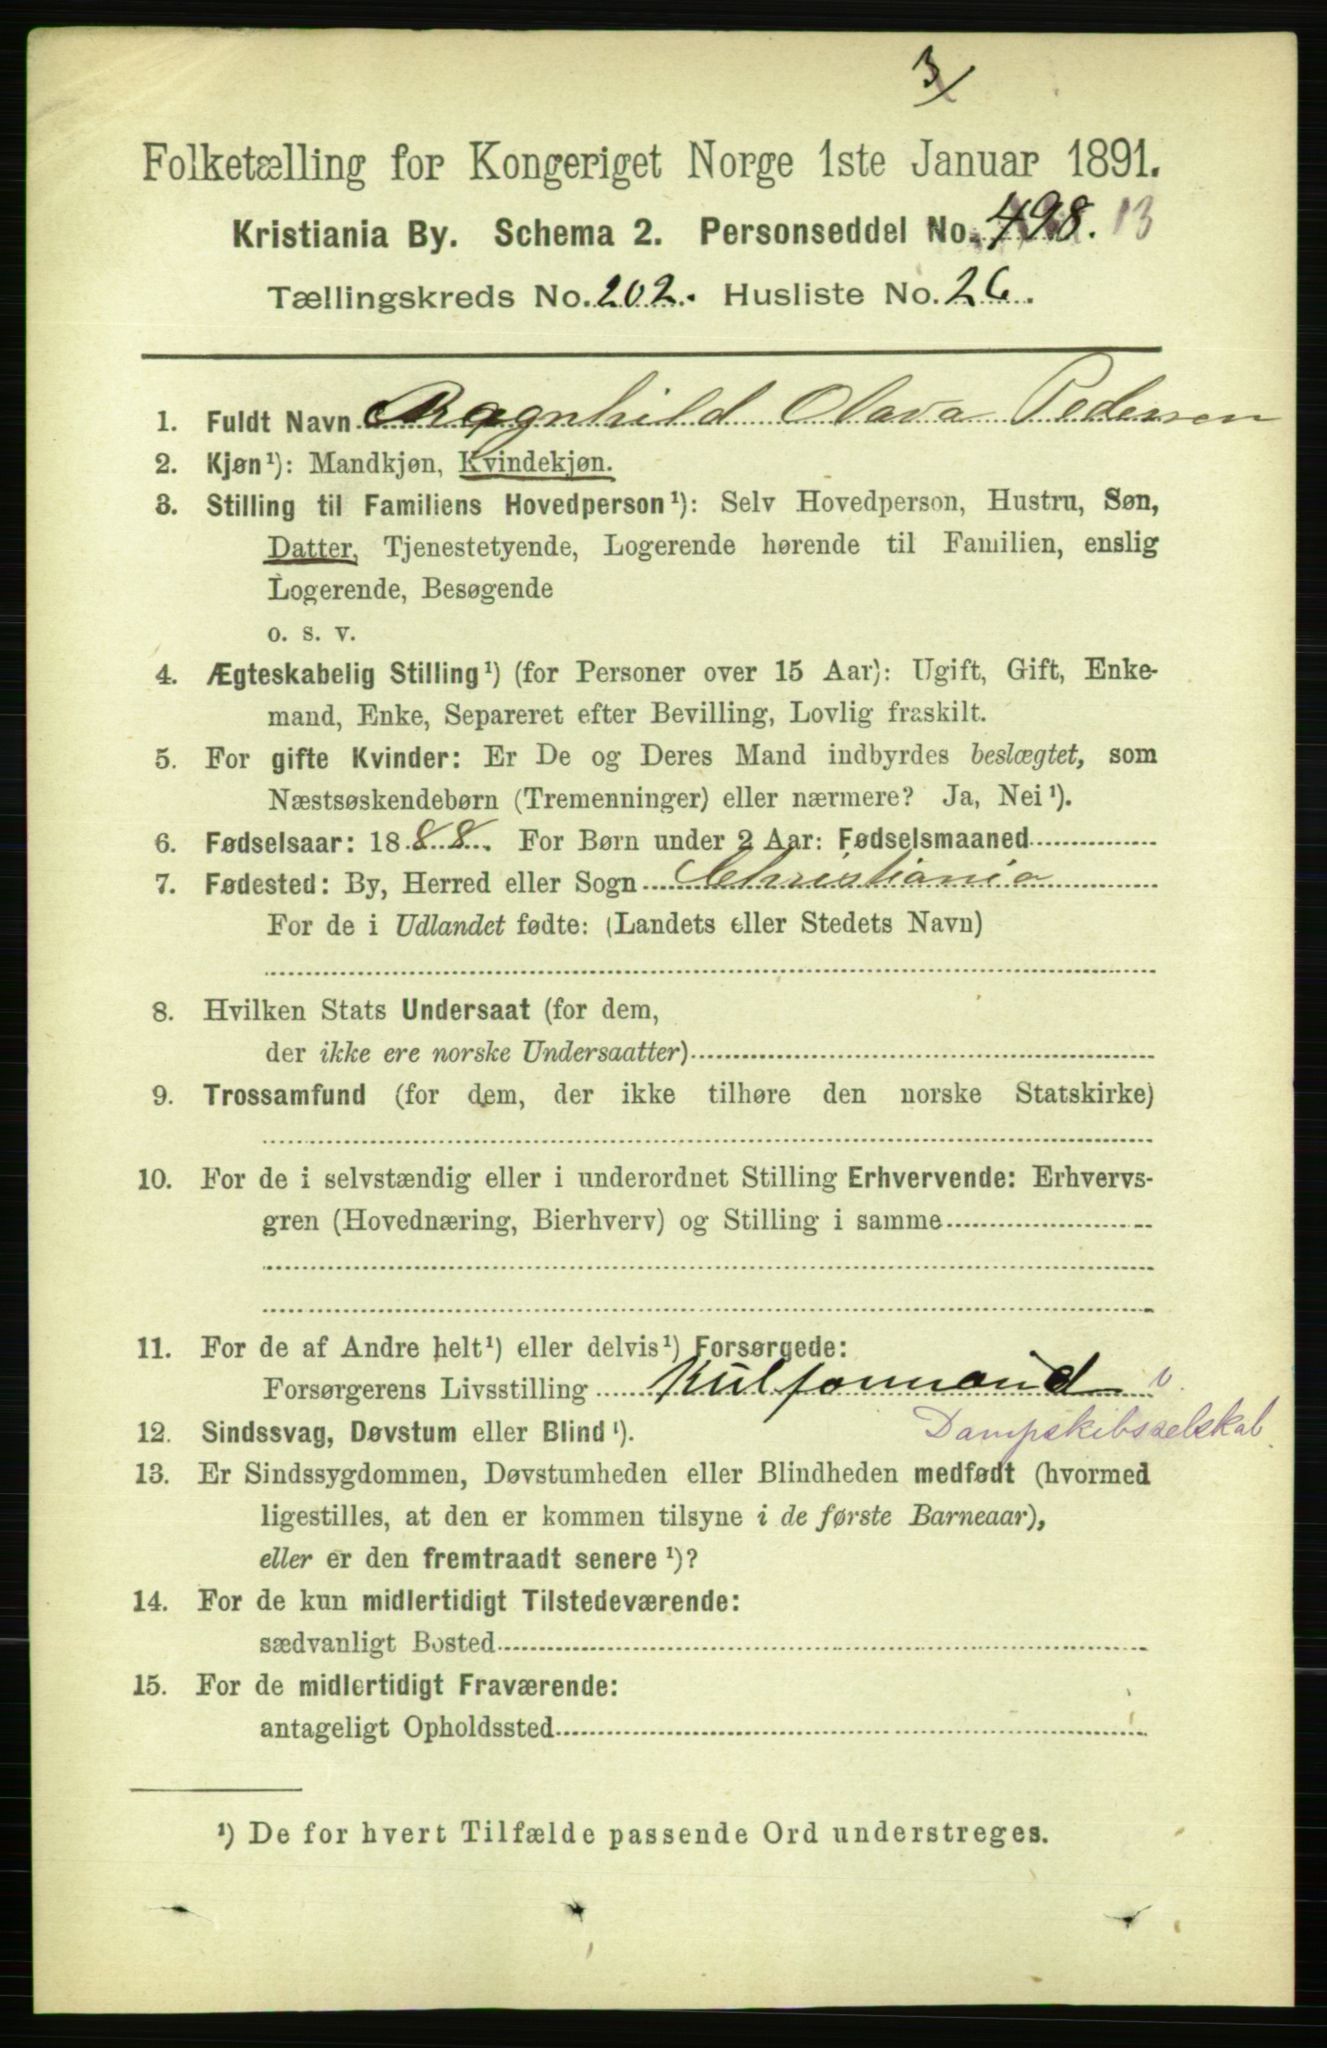 3/
Folketælling for Kongeriget Norge 1ste Januar 1891.
Kristiania By. Schema 2. Personseddel No. 498. 13
Tællingskreds No. 202. Husliste No. 26.
1. Fuldt Navn Ragnhild Olava Pedersen
2. Kjøn¹): Mandkjøn, Kvindekjøn.
3. Stilling til Familiens Hovedperson¹): Selv Hovedperson, Hustru, Søn,
Datter, Tjenestetyende, Logerende hørende til Familien, enslig
Logerende, Besøgende
o. s. v.
4. Ægteskabelig Stilling¹) (for Personer over 15 Aar): Ugift, Gift, Enke-
mand, Enke, Separeret efter Bevilling, Lovlig fraskilt.
5. For gifte Kvinder: Er De og Deres Mand indbyrdes beslægtet, som
Næstsøskendebørn (Tremenninger) eller nærmere? Ja, Nei¹).
6. Fødselsaar: 1888. For Børn under 2 Aar: Fødselsmaaned
7. Fødested: By, Herred eller Sogn Christiania
For de i Udlandet fødte: (Landets eller Stedets Navn)
8. Hvilken Stats Undersaat (for dem,
der ikke ere norske Undersaatter)
9. Trossamfund (for dem, der ikke tilhøre den norske Statskirke)
10. For de i selvstændig eller i underordnet Stilling Erhvervende: Erhvervs-
gren (Hovednæring, Bierhverv) og Stilling i samme
11. For de af Andre helt¹) eller delvis¹) Forsørgede:
Forsørgerens Livsstilling Kulformand v.
12. Sindssvag, Døvstum eller Blind¹). Dampskibsselskab.
13. Er Sindssygdommen, Døvstumheden eller Blindheden medfødt (hvormed
ligestilles, at den er kommen tilsyne i de første Barneaar),
eller er den fremtraadt senere¹)?
14. For de kun midlertidigt Tilstedeværende:
sædvanligt Bosted
15. For de midlertidigt Fraværende:
antageligt Opholdssted
¹) De for hvert Tilfælde passende Ord understreges.